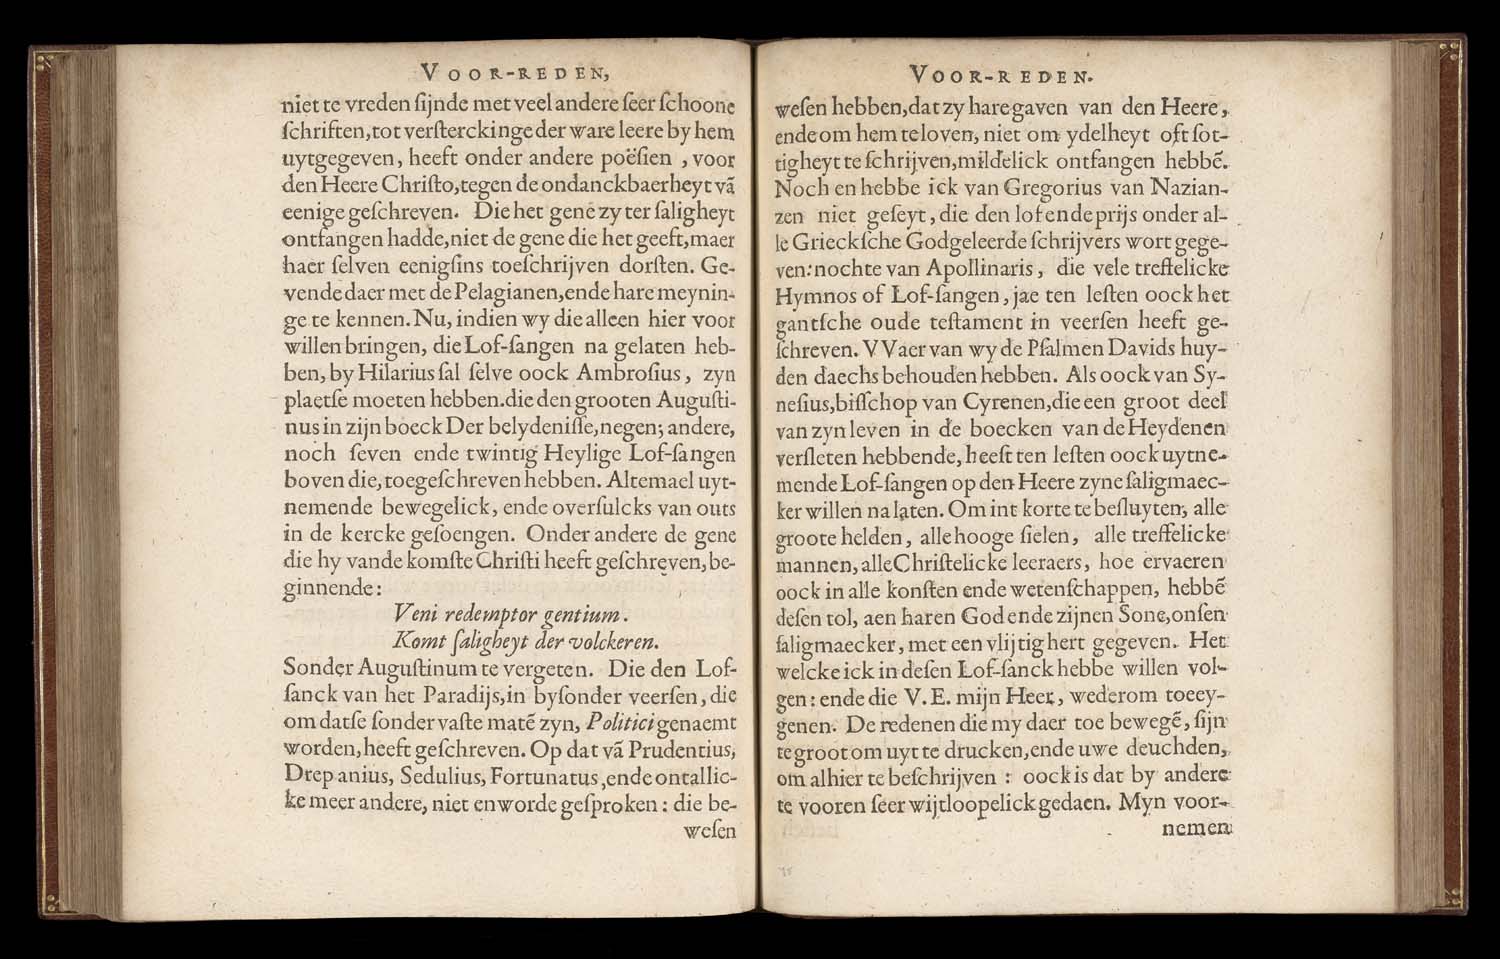 VOOR-REDEN,
niet te vreden ſijnde met veel andere ſeer ſchoone
ſchriften, tot verſterckinge der ware leere by hem
uytgegeven, heeft onder andere poëſien, voor
den Heere Chriſto, tegen de ondanckbaerheyt vā
eenige geſchreven. Die het gene zy ter ſaligheyt
ontfangen hadde, niet de gene die het geeft, maer
haer ſelven eenigſins toeſchrijven dorſten. Ge-
vende daer met de Pelagianen, ende hare meynin-
ge te kennen. Nu, indien wy die alleen hier voor
willen bringen, die Lof-ſangen na gelaten heb-
ben, by Hilarius ſal ſelve oock Ambroſius, zyn
plaetſe moeten hebben. die den grooten Auguſti-
nus in zijn boeck Der belydeniſſe, negen; andere,
noch ſeven ende twintig Heylige Lof-ſangen
boven die, toegeſchreven hebben. Altemael uyt-
nemende bewegelick, ende overſulcks van outs
in de kercke geſoengen. Onder andere de gene
die hy vande komſte Chriſti heeft geſchreven, be-
ginnende:
Veni redemptor gentium.
Komt ſaligheyt der volckeren.
Sonder Auguſtinum te vergeten. Die den Lof-
ſanck van het Paradijs, in byſonder veerſen, die
om datſe ſonder vaſte matē zyn, Politici genaemt
worden, heeft geſchreven. Op dat vā Prudentius,
Drepanius, Sedulius, Fortunatus, ende ontallic-
ke meer andere, niet en worde geſproken: die be-
weſen
VOOR-REDEN.
weſen hebben, dat zy hare gaven van den Heere,
ende om hem te loven, niet om ydelheyt oft ſot-
tigheyt te ſchrijven, mildelick ontfangen hebbē.
Noch en hebbe ick van Gregorius van Nazian-
zen niet geſeyt, die den lof ende prijs onder al-
le Grieckſche Godgeleerde ſchrijvers wort gege-
ven: nochte van Apollinaris, die vele treffelicke
Hymnos of Lof-ſangen, jae ten leſten oock het
gantſche oude teſtament in veerſen heeft ge-
ſchreven. VVaer van wy de Pſalmen Davids huy-
den daechs behouden hebben. Als oock van Sy-
neſius, biſſchop van Cyrenen, die een groot deel
van zyn leven in de boecken van de Heydenen
verſleten hebbende, heeft ten leſten oock uytne-
mende Lof-ſangen op den Heere zyne ſaligmaec-
ker willen nalaten. Om int korte te beſluyten, alle
groote helden, alle hooge ſielen, alle treffelicke
mannen, alle Chriſtelicke leeraers, hoe ervaeren
oock in alle konſten ende wetenſchappen, hebbē
deſen tol, aen haren God ende zijnen Sone, onſen
ſaligmaecker, met een vlijtig hert gegeven. Het
welcke ick in deſen Lof-ſanck hebbe willen vol-
gen: ende die V. E. mijn Heer, wederom toeey-
genen. De redenen die my daer toe bewegē, ſijn
te groot om uyt te drucken, ende uwe deuchden,
om alhier te beſchrijven: oock is dat by andere
te vooren ſeer wijtloopelick gedaen. Myn voor-
nemen